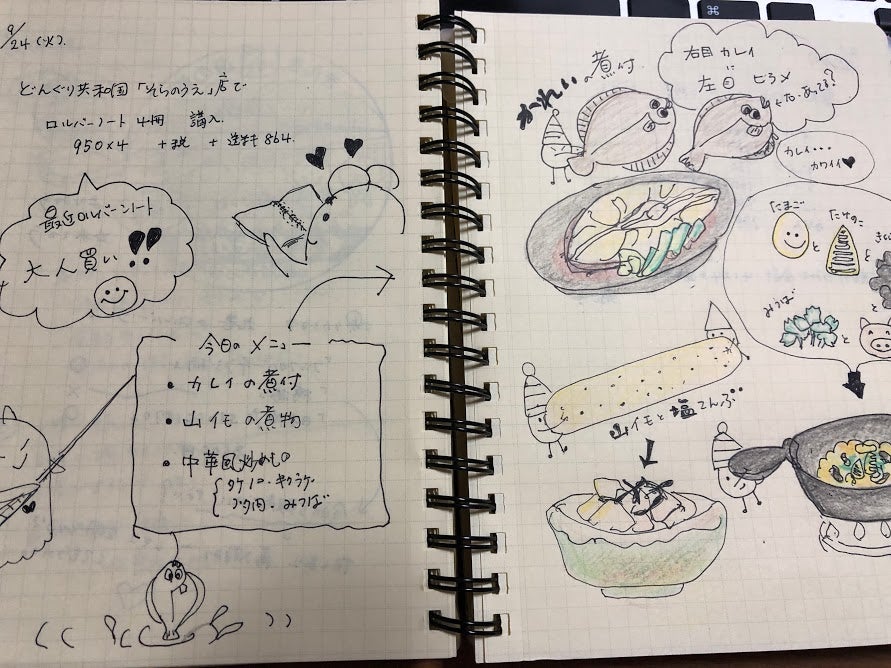 9/24 (火).
どんぐり共和国「そらのうえ」店で
ロルバーンノート 4冊 購入.
950×4 +税 + 送料 864.
最近ロルバーンノート
大人買い!!
今日のメニュー
・カレイの煮付
・山イモの煮物
・中華風炒めもの
タケノコ・キクラゲ
ブタ肉・みつば
かれいの煮付.
右目 カレイ
左目 ヒラメ
←右.あってる?
カレイ・・・
カワイイ♥
たまご
と
たけのこ
と
みつば
と
山イモと塩こんぶ